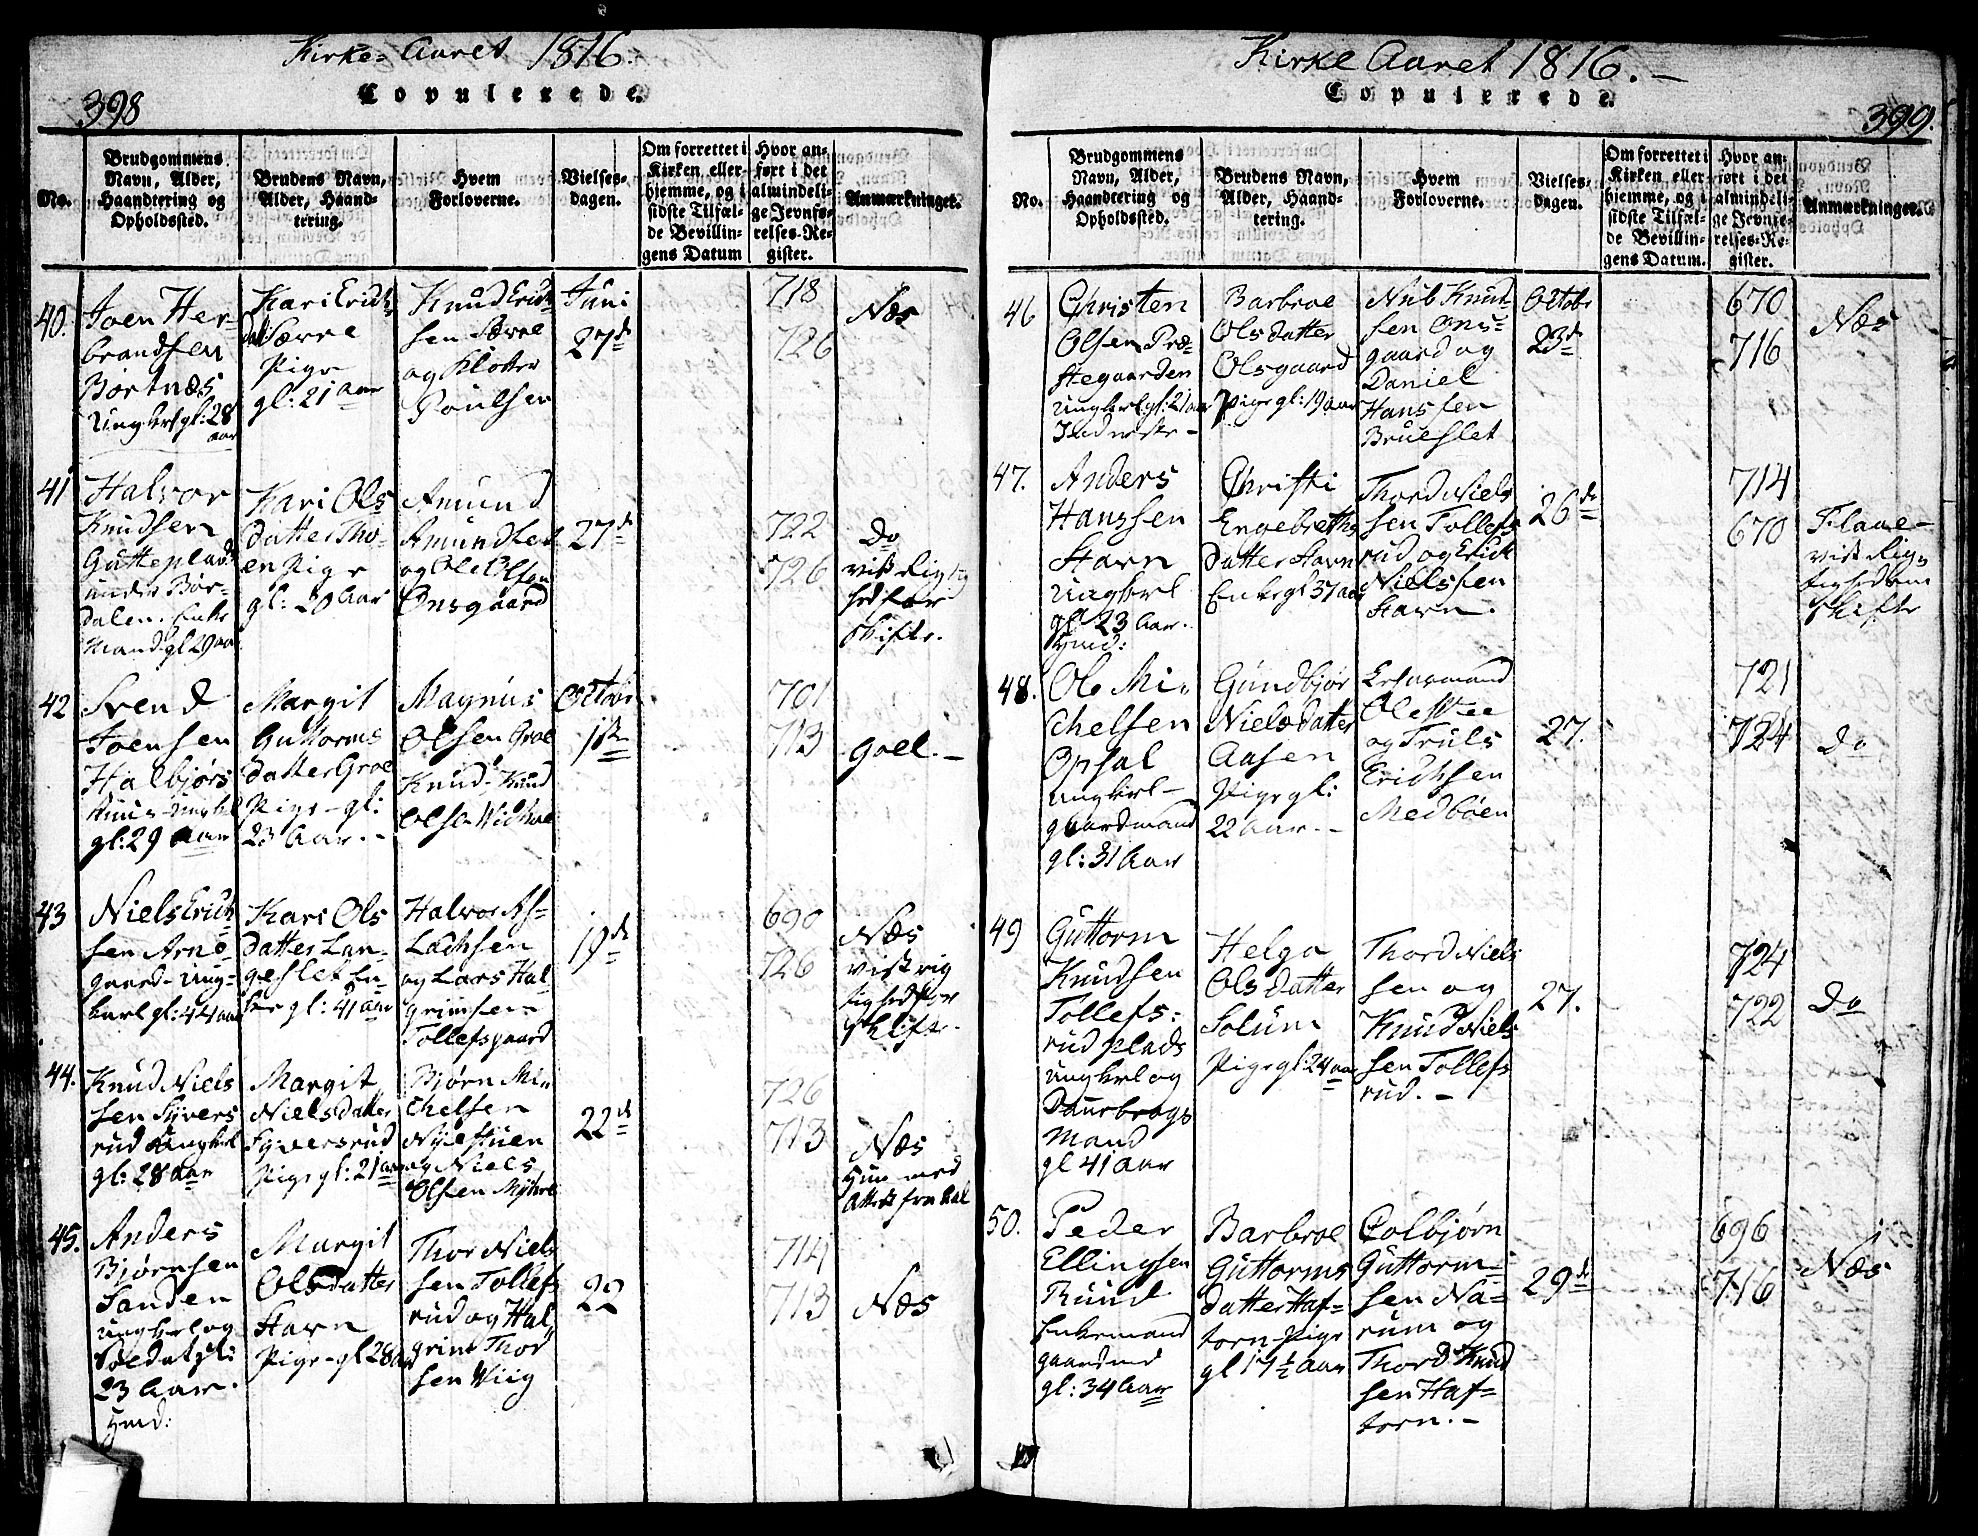 Kirke-Aaret 1816.
Copulerede.
398
No.
Brudgommens
Navn, Alder,
Haandtering og
Opholdssted.
Brudens Navn,
Alder, Haand-
tering.
Hvem
Forloverne.
Vielses-
dagen.
Om forrettet i
Kirken eller
hjemme, og i
sidste Tilfæl-
de Bevillin-
gens Datum
Hvor an-
ført i det
almindeli-
ge Jevnfø-
relses-Re-
gister.
Anmærkninger.
40.
Joen Her-
brandsen
Børtnæs
Ungkrl gl: 28
aar
Kari Erichs
dat Særre
Pige
gl: 21 aar
Knud Erich-
sen Særre
og Kløtter
Poulsen
Juni
27de
718
726
Næs
41
Halvor
Knudsen
Gutteplads
under Bør-
dalen. Enke
Mand gl 29 aar
Kari Ols
datter Tho-
en Pige
gl: 20 Aar
Amund
Amundsen
og Ole Olsen
Onsgaard
27de
722
726
Do
vist Rigtig
hed for
Skifte.
42
Svend
Joensen
Halbjørs
Ungkrl
gl: 29 Aar
Margit
Guttorms
datter Groe
Pige - gl:
23 Aar. -
Magnus
Olsen Groe
Knud Knud
Olse
Octobr
701
713
Goel. -
43
Niels Erich
sen Arne-
gaard - Ung-
karl gl: 44 aar
Kari Ols
datter Lan-
geslet En-
ke gl: 41 aar
Halvor As-
lachsen
og Lars Hal-
grimsen
Tollefsgaard
19de
690
726
Næs
vist rig
tighed for
Skifte.
44.
Knud Niels
sen Syvers
rud Ungkrl
gl: 28 Aar
Margit
Nielsdatter
Syversrud
Pige gl: 21 aar
Bjørn Mi-
chelsen
Nyestuen
og Niels
Olsen Myhre
22de
726
713
Næs
Hun med
Attest fra Aal
45.
Anders
Bjørnsen
Sanden
ungkrl og
Soldat gl:
23 Aar.
Hmd:
Margit
Olsdatter
Stavn
Pige - gl 28 aar
Thor Niels
sen Tollefs
rud og Hal
grim Thor
sen Wiig
22
714
713
Næs
Kirke Aaret 1816. -
Copulerede.
399.
No.
Brudgommens
Navn, Alder,
Haandtering og
Opholdssted.
Brudens Navn,
Alder, Haand-
tering.
Hvem
Forloverne.
Vielses-
dagen.
Om forrettet i
Kirken eller
hjemme, og i
sidste Tilfæl-
de Bevillin-
gens Datum.
Hvor an-
ført i det
almindeli-
ge Jevnfø-
relses-Re-
gister.
Anmærkninger.
46
Christen
Olsen Præ-
stegaarden
Ungkrl gl: 21 aar
Inderste -
Barbroe
Olsdatter
Olsgaard
Pige gl: 19 aar
Nub Knud
sen Ons-
gaard og
Daniel
Hanssen
Brueslet
Octobr
23de
670
716
Næs
47.
Anders
Hanssen
Stavn
Ungkrl
gl 23 Aar.
Hmd:
Christi
Engebreths
datter Stavn
Enke gl 37 aar
Thord Niels
sen Tollefs
rud og Erick
Nielssen
Stavn.
26de
714
670
Flaae -
vist Rig-
tighed om
Skifte
48.
Ole Mi-
chelsen
Opsal
ungkrl -
gaardmand
gl: 31 Aar
Gundbjør
Nielsdatter
Aasen
Pige gl:
22 Aar. -
Ole
og Truls
Erichsen
Medbøen
27.
721
724
Do
49
Guttorm
Knudsen
Tollefs-
rud plads
ungkrl og
Dannebrogs
Mand
gl 41 Aar
Helga
Olsdatter
Solum
Pige gl: 24 aar
Thord Niels
sen og
Knud Niel-
sen Tollefs
rud. -
27.
724
722
Do
50.
Peder
Ellingsen
Ruud
Enkemand
gaardmd
gl: 34 Aar
Barbroe
Guttorms
datter Haf-
torn Pige
gl 17 1/2 Aar
Colbjørn
Guttorm-
sen Na-
rum og
Thord Knud
sen Haf-
torn. -
29de
696
716
Næs